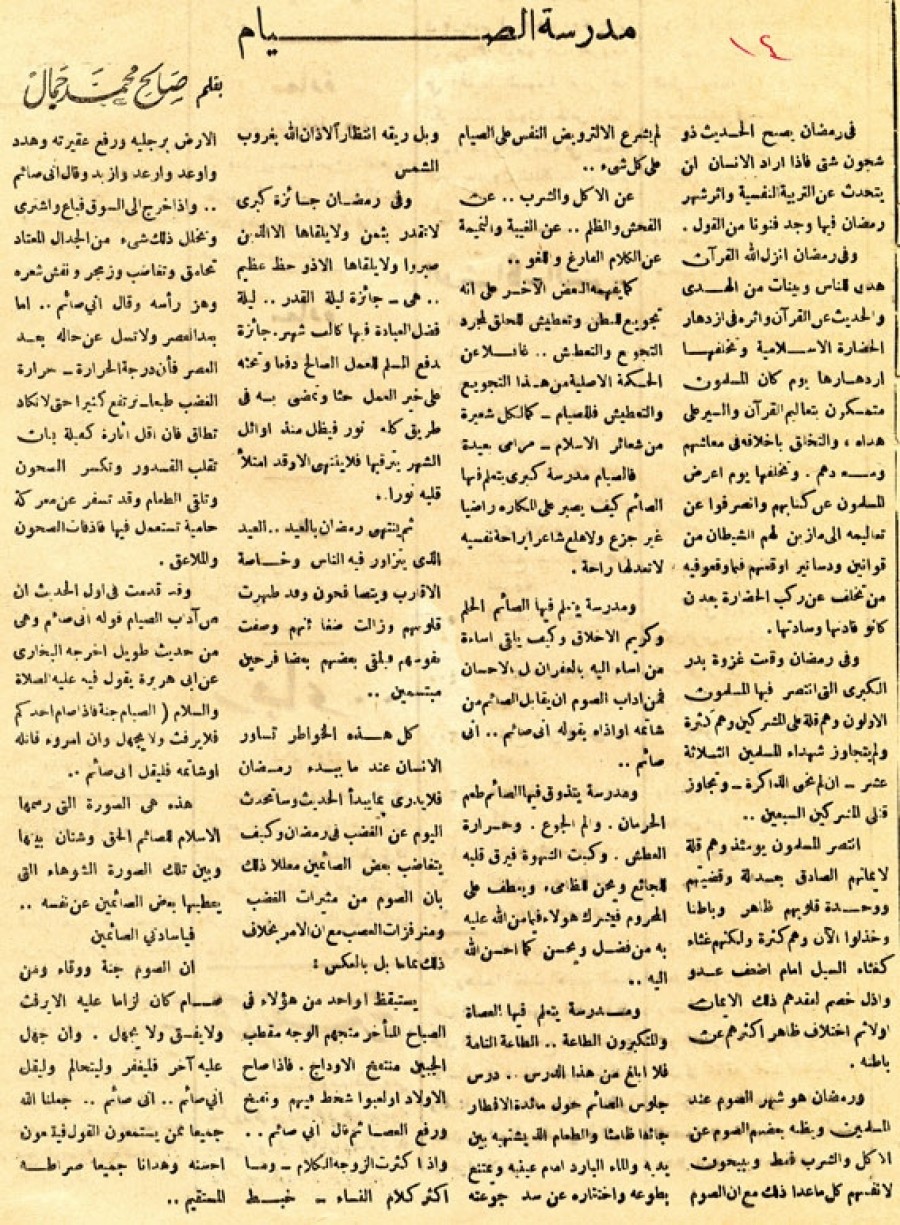 مدرسة الصيام
١٤
بقلم صالح محمد جمال
فى رمضان يصبح الحديث ذو
شجون شتى فاذا اراد الانسان ان
يتحدث عن التربية النفسية واثر شهر
رمضان فيها وجد فنونا من القول .
وفى رمضان انزل الله القرآن
هدى للناس وبينات من الهدى
والحديث عن القرآن واثره فى ازدهار
الحضارة الاسلامية وتخلفها
ازدهارها يوم كان المسلمون
متمسكون بتعاليم القرآن والسير على
هداه ، والتخلق باخلاقه فى معاشهم
ومعادهم . وتخلفها يوم اعرض
المسلمون عن كتابهم وانصرفوا عن
تعاليمه الى مازين لهم الشيطان من
قوانين ودساتير اوقعتهم فيما وقعوا فيه
من تخلف عن ركب الحضارة بعد ن
كانو قادتها وسادتها .
وفى رمضان وقعت غزوة بدر
الكبرى التى انتصر فيها المسلمون
الاولون وهم قلة على المشركين وهم كثرة
ولم يتجاوز شهداء المسلمين الثلاثة
عشر - ان لم تخنى الذاكرة - وتجاوز
قتلى المشركين السبعين ..
انتصر المسلمون يومئذ وهم قلة
لايمانهم الصادق بعدالة وقضيهم
ووحدة قلوبهم ظاهر وباطنا
وخذلوا الآن وهم كثرة ولكنهم غثاء
كغثاء السيل امام اضعف عدو
واذل خصم لفقدهم ذلك الايمان
اولا ثم اختلاف ظاهر اكثرهم عن
باطنه .
ورمضان هو شهر الصوم عند
المسلمين ويظنه بعضهم الصوم عن
الاكل والشرب فقط ويبيحون
لانفسهم كل ماعدا ذلك مع ان الصوم
لم يشرع الا لترويض النفس على الصيام
على كل شىء ..
عن الاكل والشرب .. عن
الفحش والظلم .. عن الغيبة والنميمة
عن الكلام الفارغ واللغو ..
كما يفهمه البعض الآخر على انه
تجويع للبطن وتعطيش للحلق لمجرد
التجوع والتعطش .. غافلا عن
الحكمة الاصلية من هذا التجويع
والتعطيش فللصيام - كما لكل شعيرة
من شعائر الاسلام - مرامى بعيدة
فالصيام مدرسة كبرى يتعلم فيها
الصائم كيف يصبر على المكاره راضيا
غير جزع ولا هلع شاعرا براحة نفسيه
لا تعدلها راحة .
ومدرسة يتعلم فيها الصائم الحلم
وكريم الاخلاق وكيف يلقى اساءة
من اساء اليه بالغفران بل الاحسان
فمن اداب الصوم ان يقابل الصائم من
شاتمه او اذاه بقوله انى صائم .. انى
صائم ..
ومدرسة يتذوق فيها الصائم طعم
الحرمان . والم الجوع . وحرارة
العطش . وكبت الشهوة فيرق قلبه
للجائع ويحن للظامىء ويعطف على
المحروم فيشرك هولاء فيما من الله عليه
به من فضل ويحسن كما احسن الله
اليه ..
ومدرسة يتعلم فيها العصاة
والمتكبرون الطاعة .. الطاعة التامة
فلا ابلغ من هذا الدرس .. درس
جلوس الصائم حول مائدة الافطار
جائعا ظامئا والطعام الذ يشتهيه بين
يديه والماء البارد امام عينيه ويمتنع
بطوعه واختياره عن سد جوعته
وبل ريقه انتظارا لآذان الله بغروب
الشمس
وفى رمضان جائزة كبرى
لا تقدر بثمن ولا يلقاها الا الذين
صبروا ولا يلقاها الا ذو حظ عظيم
.. هى - جائزة ليلة القدر .. ليلة
فضل العبادة فيها كالف شهر . جائزة
تدفع المسلم للعمل الصالح دفعا وتحثه
على خير العمل حثا وتمضى به فى
طريق كله نور فيظل منذ اوائل
الشهر يترقبها فلا ينتهى الا وقد امتلأ
قلبه نورا .
ثم ينتهى رمضان بالعيد .. العيد
الذى يتزاور فيه الناس وخاصة
الاقارب ويتصافحون وقد طهرت
قلوبهم وزالت ضغائنهم وصفت
نفوسهم فيلقى بعضهم بعضا فرحين
مبتسمين ..
كل هذه الخواطر تساور
الانسان عند ما يبدء رمضان
فلا يدرى بما يبدأ الحديث وساتحدث
اليوم عن الغضب فى رمضان وكيف
يتغاضب بعض الصائمين معللا ذلك
بان الصوم من مثيرات الغضب
ومنرفزات العصب مع ان الامر بخلاف
ذلك تماما بل بالعكس :
يستيقظ اوأحد من هؤلاء فى
الصباح المتأخر متجهم الوجه مقطب
الجبين منتفخ الاوداج . فاذا صاح
الاولاد او لعبوا شخط فيهم ونفخ
ورفع العصا ثم قال انى صائم ..
واذا كثرت الزوجه الكلام - وما
اكثر كلام النساء - خبط
الارض برجليه ورفع عقيرته وهدد
واوعد وارعد وازبد وقال انى صائم
.. واذا خرج الى السوق فباع واشترى
وتخلل ذلك شىء من الجدال المعتاد
تحامق وتغاضب وزمجر ونفش شعره
وهز رأسه وقال انى صائم .. اما
بعد العصر ولا تسل عن حاله بعد
العصر فأن درجة الحرارة - حرارة
الغضب طبعا - ترتفع كثيرا حتى لا تكاد
تطاق فان اقل اثارة كفيلة بان
تقلب القدور وتكسر الصحون
وتلقى الطعام وقد تسفر عن معركة
حامية تستعمل فيها قاذفات الصحون
والملاعق .
وقد قدمت فى اول الحديث ان
من آداب الصيام قوله انى صائم وهى
من حديث طويل اخرجه البخارى
عن ابى هريرة يقول فيه عليه الصلاة
والسلام ( الصيام جنة فاذا صام احدكم
فلا يرفث ولا يجهل وان امروء قاتله
او شاتمه فليقل انى صائم ..
هذه هى الصورة التى رسمها
الاسلام للصائم الحق وشتان بينها
وبين تلك الصورة الشوهاء التى
يعطيها بعض الصائمين عن نفسه ..
فياسادتي الصائمين
ان الصوم جنة ووقاء ومن
صام كان لزاما عليه الا يرفث
ولا يفسق ولا يجهل . وان جهل
عليه آخر فليغفر وليتحالم وليقل
انى صائم .. انى صائم .. جعلنا الله
جميعا ممن يستمعون القول فيتبعون
احسنه وهدانا جميعا صراطه
المستقيم ..